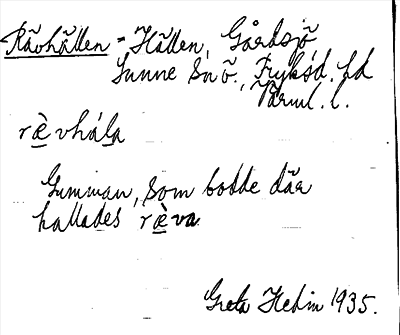 Rävhällen = Hällen, Gårdsjö,
Sunne Sn ö., Fryksd. hd
Värml. l.
rὲvhála
Gumman, som bodde där
kallades rὲva
Greta Hedin 1935.